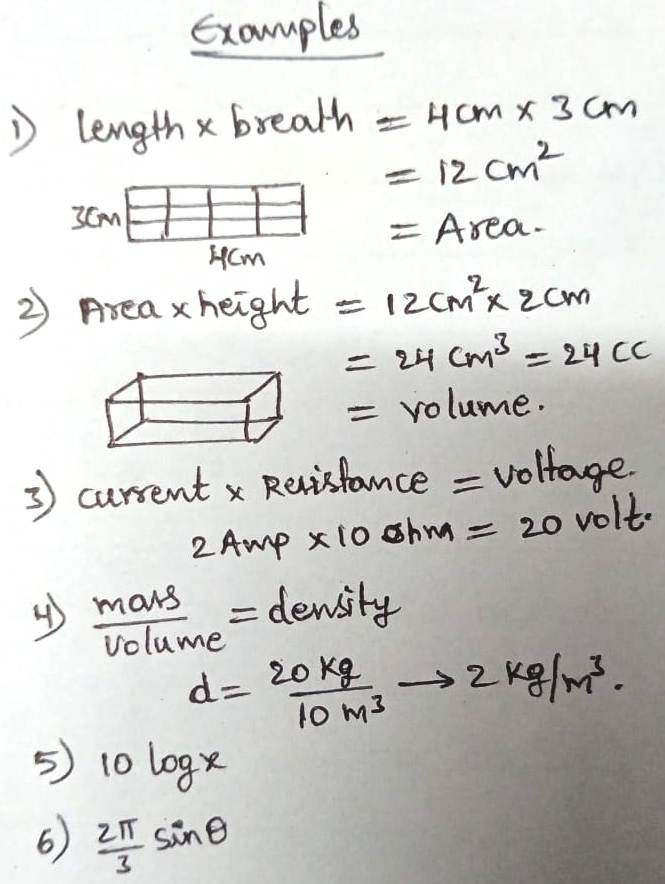 Examples
1) Length x breath = 4cm x 3 cm
= 12 cm²
3cm
= Area.
4cm
2) Area x height = 12cm² x 2cm
= 24 cm³ = 24 CC
= volume.
3) current x Resistance = voltage.
2 Amp x 10 ohm = 20 volt.
4) mass/volume = density
d = 20 Kg/10 m³ → 2 Kg/m³.
5) 10 log x
6) 2π/3 sin θ